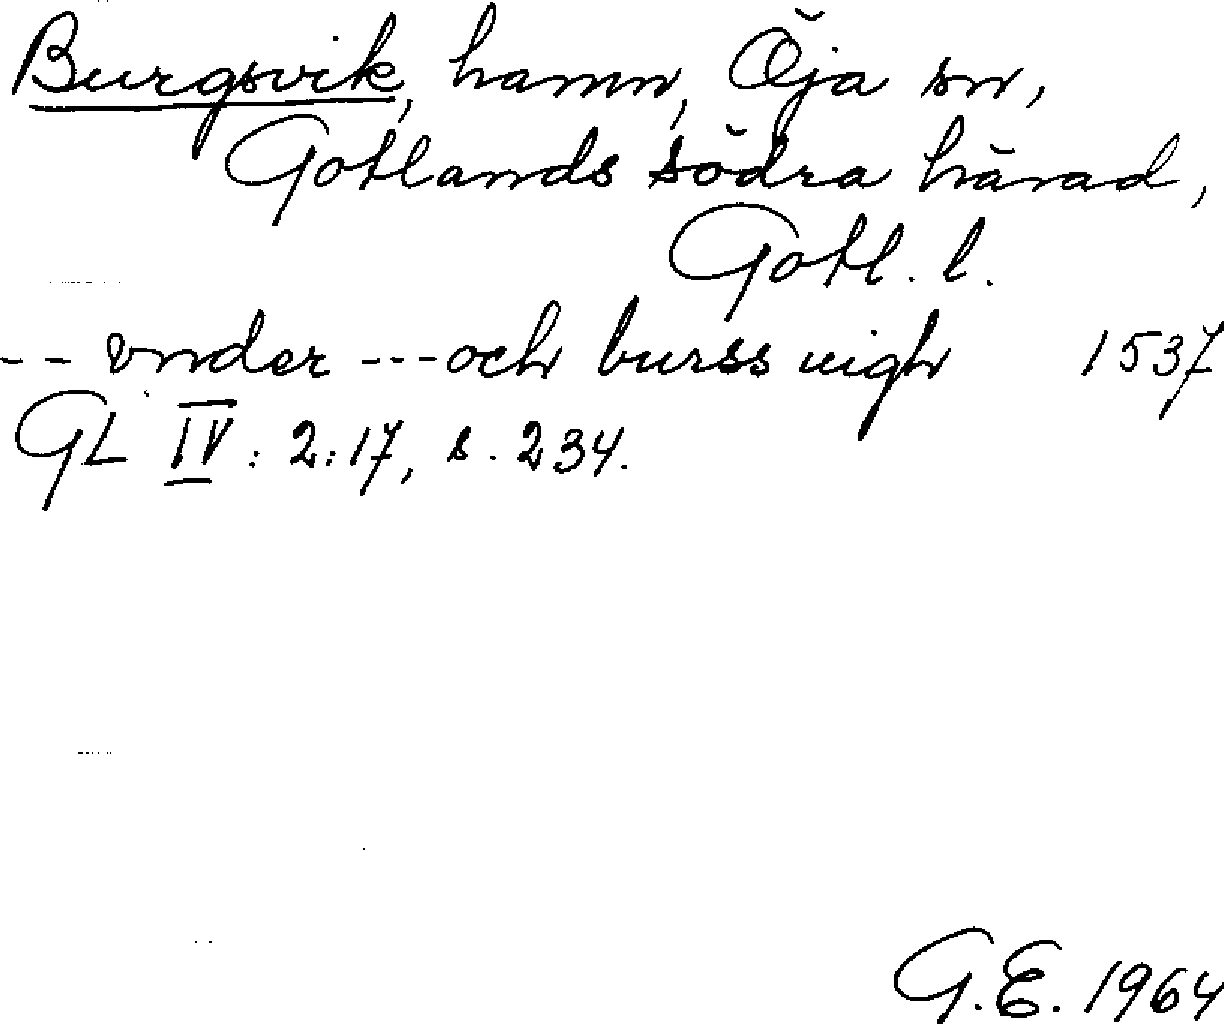 Burgsvik, hamn, Öja sn,
Gotlands södra härad,
Gotl. l.
-- vnder --- och burss uigh 1537
GL IV: 2:17, s. 234.
G.E. 1964